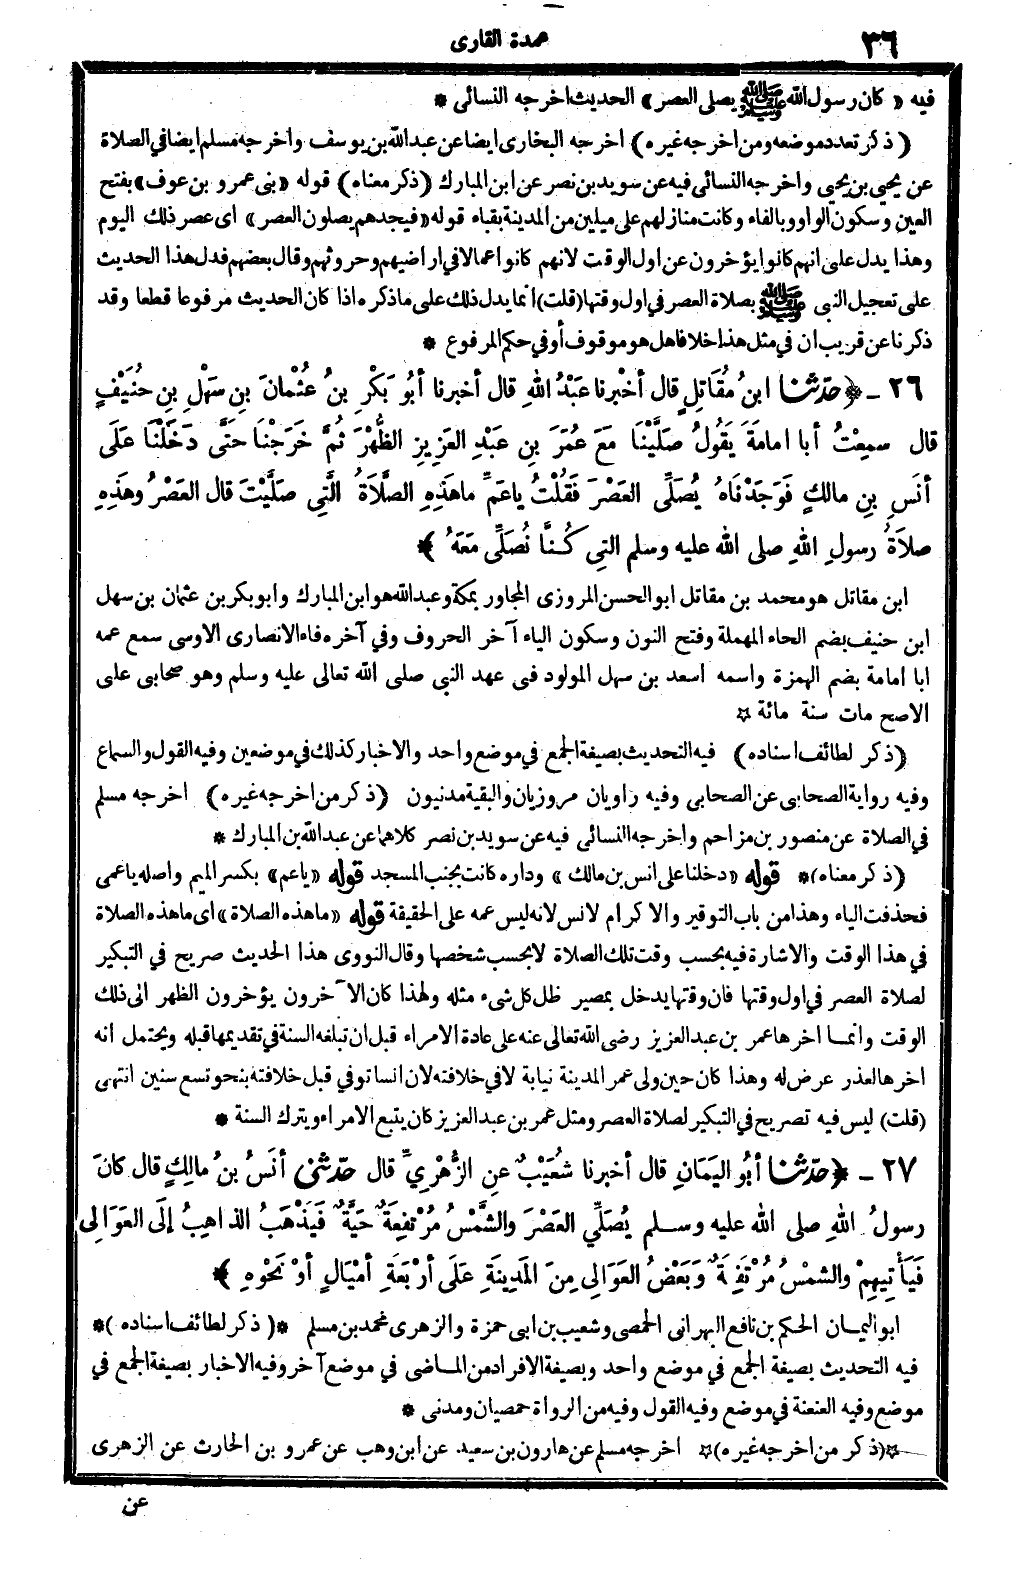 ٣٦
عمدة القارى
فيه « كان رسول الله ﷺ يصلى العصر » الحديث اخرجه النسائى *
( ذكر تعدد موضعه ومن اخرجه غيره ) اخرجه البخارى ايضا عن عبدالله بن يوسف واخرجه مسلم ايضا فى الصلاة
عن يحيى بن يحيى واخرجه النسائى فيه عن سويد بن نصر عن ابن المبارك ( ذكر معناه ) قوله «بنى عمرو بن عوف» بفتح
العين وسكون الواو وبالفاء وكانت منازلهم على ميلين من المدينة بقباء قوله «فيجدهم يصلون العصر» اى عصر ذلك اليوم
وهذا يدل على انهم كانوا يؤخرون عن اول الوقت لانهم كانوا عمالا فى اراضيهم وحروثهم وقال بعضهم فدل هذا الحديث
على تعجيل النبى ﷺ بصلاة العصر فى اول وقتها (قلت) انما يدل ذلك على ما ذكره اذا كان الحديث مرفوعا قطعا وقد
ذكرنا عن قريب ان فى مثل هذا خلافا هل هو موقوف أو فى حكم المرفوع *
٢٦ - ﴿ حدّثنا ابنُ مُقَاتِلٍ قال أخْبرنا عَبْدُ اللهِ قال أخبرنا أبُو بَكْرِ بنُ عُثْمانَ بنِ سَهْلِ بنِ حُنَيْفٍ
قال سمِعْتُ أبا امامَةَ يَقُولُ صَلَّيْنَا مَعَ عُمَرَ بنِ عَبْدِ العَزِيزِ الظُّهْرَ ثُمَّ خَرَجْنَا حَتَّى دَخَلْنَا عَلَى
أنَسِ بنِ مالكٍ فَوَجَدْنَاهُ يُصَلِّى العَصْرَ فَقُلْتُ ياعَمِّ ماهَذِهِ الصَّلاَةُ الَّتِى صَلَّيْتَ قال العَصْرُ وهَذِهِ
صلاَةُ رسولِ اللهِ صلى الله عليه وسلم التِى كُنَّا نُصَلِّى مَعَهُ ﴾
ابن مقاتل هو محمد بن مقاتل ابو الحسن المروزى المجاور بمكة وعبدالله هو ابن المبارك وابو بكر بن عثمان بن سهل
ابن حنيف بضم الحاء المهملة وفتح النون وسكون الياء آخر الحروف وفى آخره فاء الانصارى الاوسى سمع عمه
ابا امامة بضم الهمزة واسمه اسعد بن سهل المولود فى عهد النبى صلى الله تعالى عليه وسلم وهو صحابى على
الاصح مات سنة مائة ✡
( ذكر لطائف اسناده ) فيه التحديث بصيغة الجمع فى موضع واحد والاخبار كذلك فى موضعين وفيه القول والسماع
وفيه رواية الصحابى عن الصحابى وفيه راويان مروزيان والبقية مدنيون ( ذكر من اخرجه غيره ) اخرجه مسلم
فى الصلاة عن منصور بن مزاحم واخرجه النسائى فيه عن سويد بن نصر كلاهما عن عبدالله بن المبارك *
( ذكر معناه )* قوله « دخلنا على انس بن مالك » وداره كانت بجنب المسجد قوله «ياعم» بكسر الميم واصله ياعمى
فحذفت الياء وهذا من باب التوقير والاكرام لانس لانه ليس عمه على الحقيقة قوله «ما هذه الصلاة» اى ما هذه الصلاة
فى هذا الوقت والاشارة فيه بحسب وقت تلك الصلاة لا بحسب شخصها وقال النووى هذا الحديث صريح فى التبكير
لصلاة العصر فى اول وقتها فان وقتها يدخل بمصير ظل كل شىء مثله ولهذا كان الآخرون يؤخرون الظهر الى ذلك
الوقت وانما اخرها عمر بن عبد العزيز رضى الله تعالى عنه على عادة الامراء قبل ان تبلغه السنة فى تقديمها قبله ويحتمل انه
اخرها لعذر عرض له وهذا كان حين ولى عمر المدينة نيابة لا فى خلافته لان انسا توفى قبل خلافته بنحو تسع سنين انتهى
(قلت) ليس فيه تصريح فى التبكير لصلاة العصر ومثل عمر بن عبد العزيز كان يتبع الامراء ويترك السنة *
٢٧ - ﴿ حدّثنا أبُو اليَمَانِ قال أخبرنا شُعَيْبٌ عنِ الزُّهْرِيِّ قال حدّثنى أنَسُ بنُ مالِكٍ قال كانَ
رسولُ اللهِ صلى الله عليه وسلم يُصَلِّي العَصْرَ والشَّمْسُ مُرْتفِعَةٌ حَيَّةٌ فَيَذْهَبُ الذاهِبُ إلَى العَوَالِى
فَيَأْتِيهِمْ والشمْسُ مُرْتَفِعَةٌ وَبَعْضُ العَوَالِى مِنَ المَدِينَةِ عَلَى أرْبَعَةِ أمْيَالٍ أوْ نَحْوِهِ ﴾
ابو اليمان الحكم بن نافع البهرانى الحمصى وشعيب بن ابى حمزة والزهرى محمد بن مسلم *( ذكر لطائف اسناده )*
فيه التحديث بصيغة الجمع فى موضع واحد وبصيغة الافراد من الماضى فى موضع آخر وفيه الاخبار بصيغة الجمع فى
موضع وفيه العنعنة فى موضع وفيه القول وفيه من الرواة حمصيان ومدنى *
✡(ذكر من اخرجه غيره)✡ اخرجه مسلم عن هارون بن سعيد عن ابن وهب عن عمرو بن الحارث عن الزهرى
عن